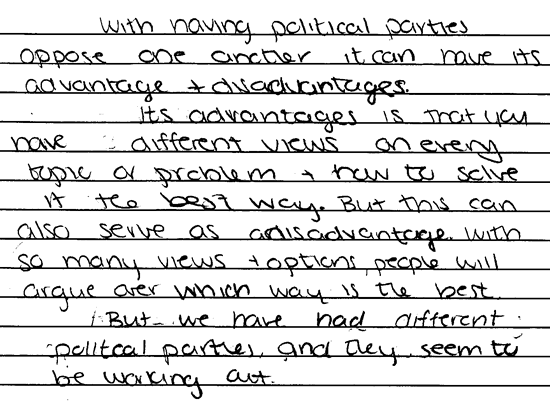 With having political parties
oppose one another it can have its
advantage + disadvantages.
Its advantages is that you
have different views on every
topic or problem + how to solve
it the best way. But this can
also serve as a disadvantage. With
so many views + options, people will
argue over which way is the best.
But we have had different
politcal parties, and they seem to
be working out.